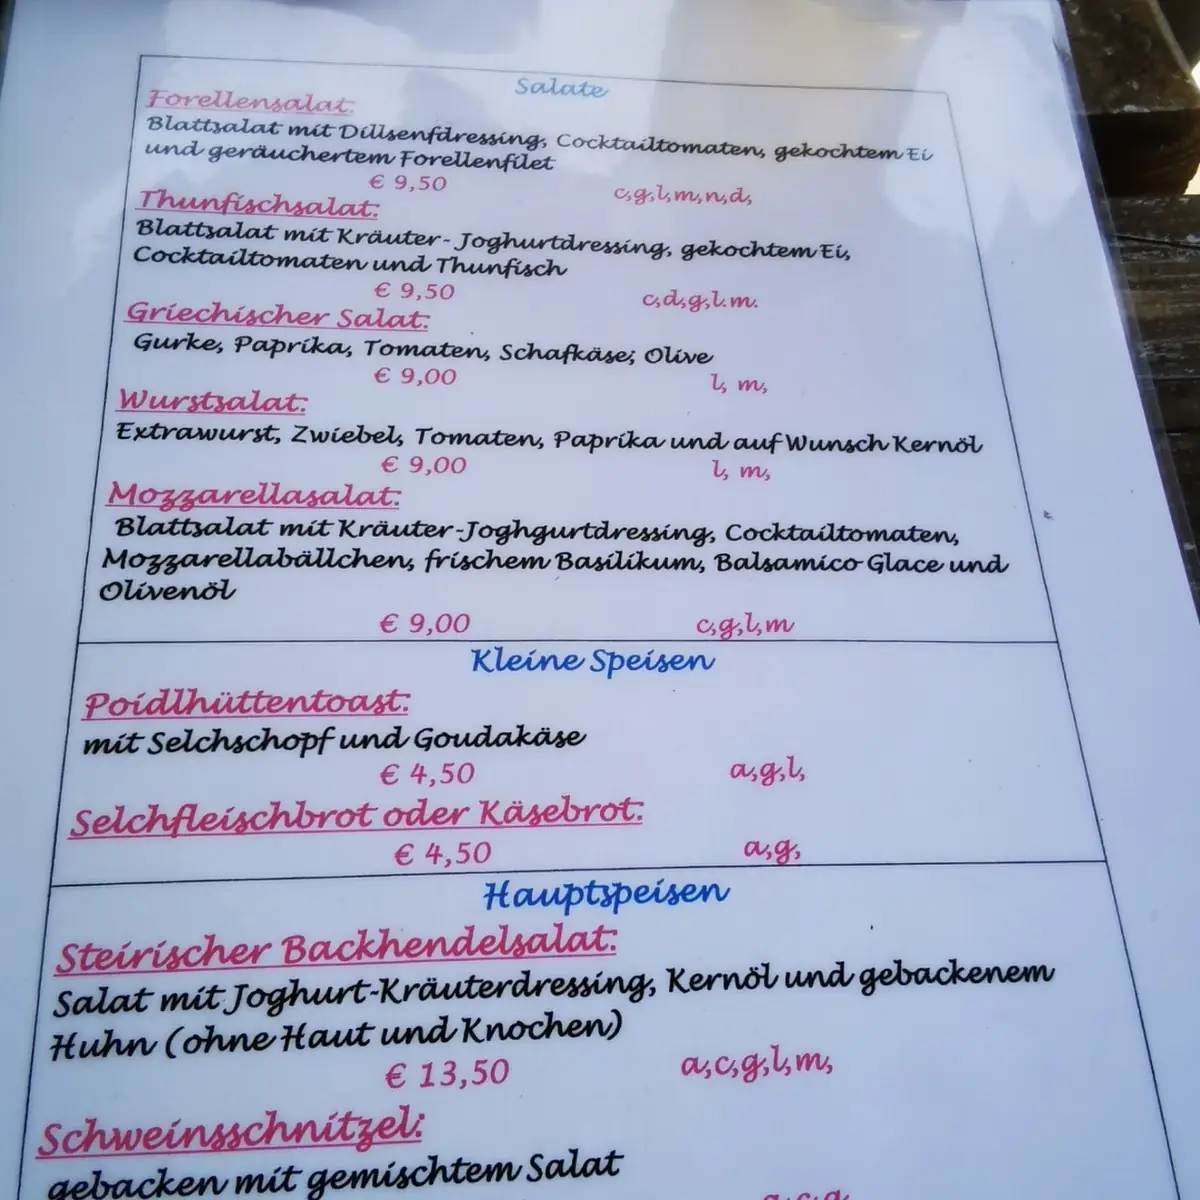 Salate
Forellensalat:
Blattsalat mit Dillsenfdressing, Cocktailtomaten, gekochtem Ei
und geräuchertem Forellenfilet
€ 9,50 c,g,l,m,n,d,
Thunfischsalat:
Blattsalat mit Kräuter- Joghurtdressing, gekochtem Ei,
Cocktailtomaten und Thunfisch
€ 9,50 c,d,g,l.m.
Griechischer Salat:
Gurke, Paprika, Tomaten, Schafkäse; Olive
€ 9,00 l, m,
Wurstsalat:
Extrawurst, Zwiebel, Tomaten, Paprika und auf Wunsch Kernöl
€ 9,00 l, m,
Mozzarellasalat:
Blattsalat mit Kräuter-Joghgurtdressing, Cocktailtomaten,
Mozzarellabällchen, frischem Basilikum, Balsamico Glace und
Olivenöl
€ 9,00 c,g,l,m
Kleine Speisen
Poidlhüttentoast:
mit Selchschopf und Goudakäse
€ 4,50 a,g,l,
Selchfleischbrot oder Käsebrot:
€ 4,50 a,g,
Hauptspeisen
Steirischer Backhendelsalat:
Salat mit Joghurt-Kräuterdressing, Kernöl und gebackenem
Huhn (ohne Haut und Knochen)
€ 13,50 a,c,g,l,m,
Schweinsschnitzel:
gebacken mit gemischtem Salat